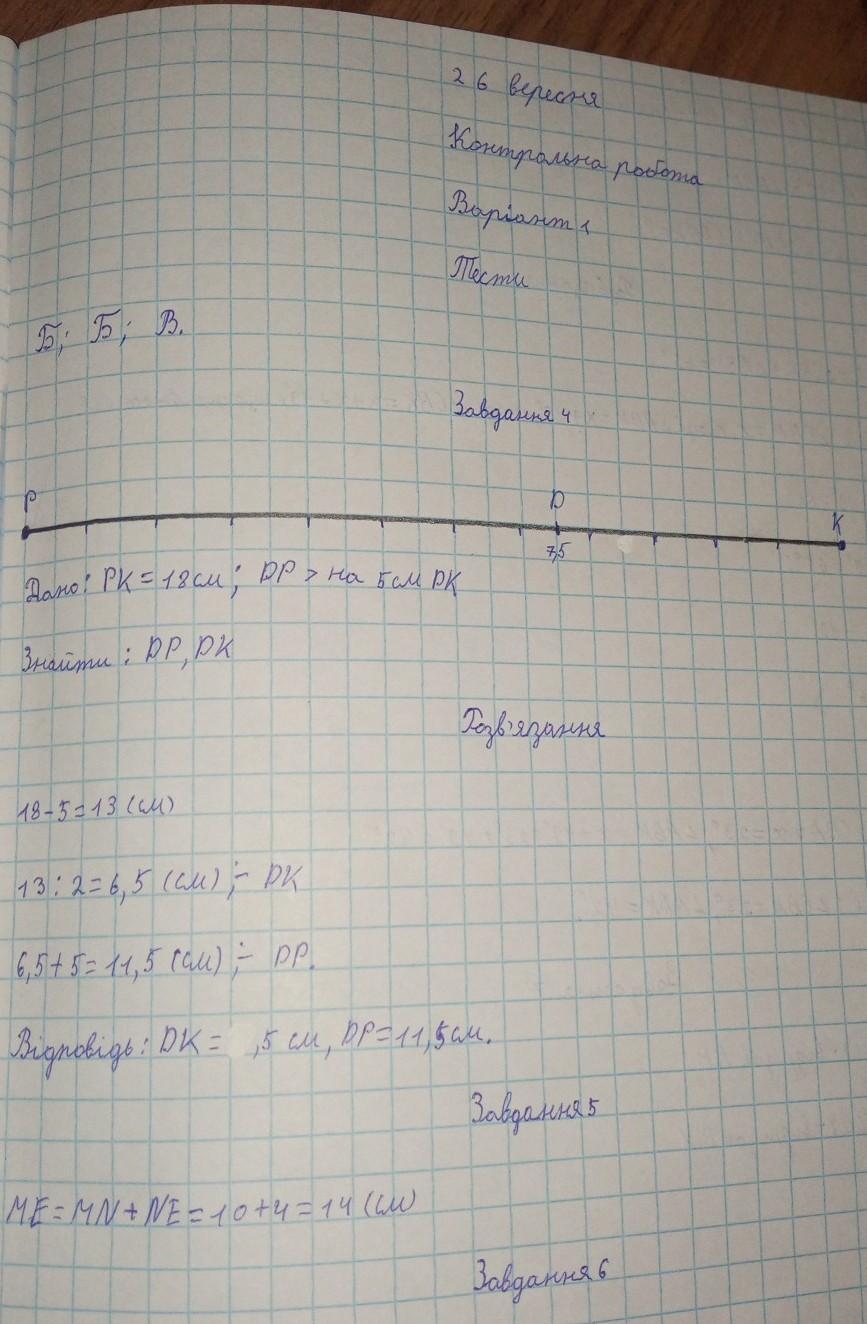 26 вересня
Контрольна робота
Варіант 1
Тести
Б; Б; В.
Завдання 4
P D K
7,5
Дано: PK = 18см; DP > на 5см DK
Знайти: DP, DK
Розв'язання
18-5=13 (см)
13:2=6,5 (см); - DK
6,5+5=11,5 (см); - DP.
Відповідь: DK = ,5 см, DP=11,5см.
Завдання 5
ME = MN + NE = 10+4 = 14 (см)
Завдання 6